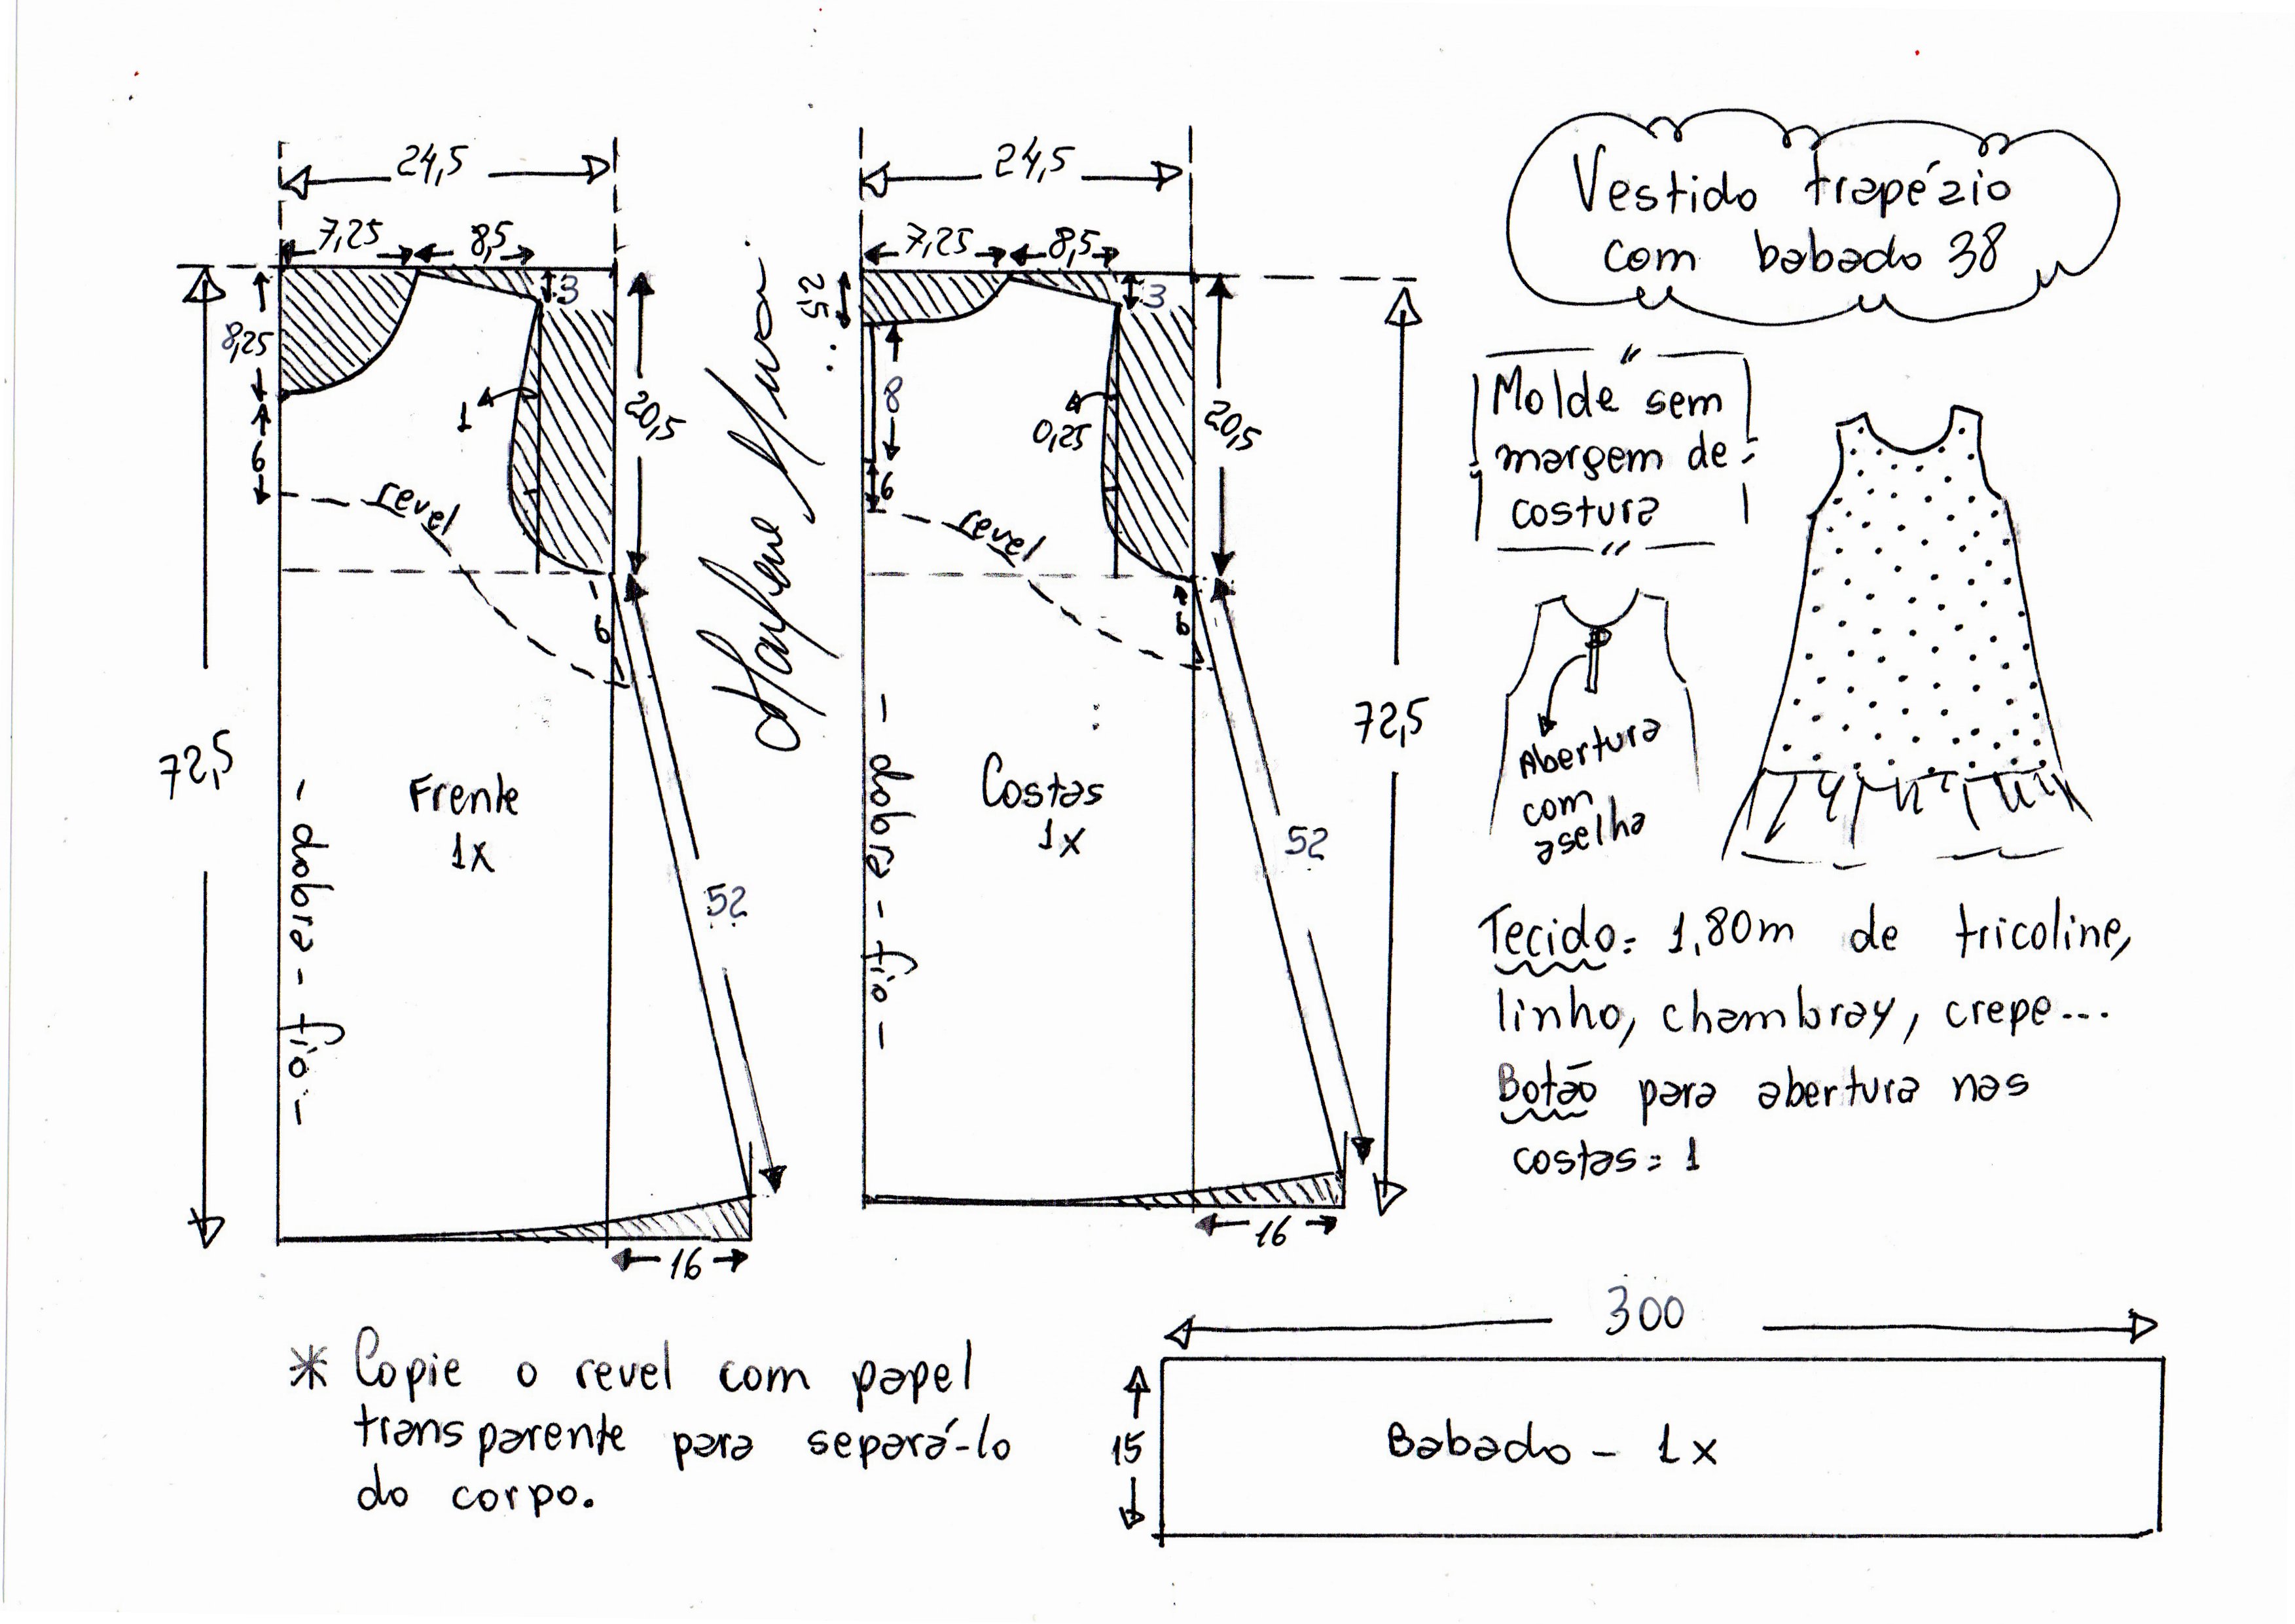 24,5
7,25
8,5
3
8,25
6
1
20,5
revel
6
72,5
Frente
1x
- dobra - fio -
52
16
24,5
7,25
8,5
2,5
3
8
6
0,25
20,5
revel
6
72,5
Costas
1x
- dobra - fio -
52
16
Vestido trapézio
com babado 38
Molde sem
margem de
costura
Abertura
com
aselha
Tecido= 1,80m de tricoline,
linho, chambray, crepe...
Botão para abertura nas
costas= 1
* Copie o revel com papel
transparente para separá-lo
do corpo.
300
15
Babado - 1x